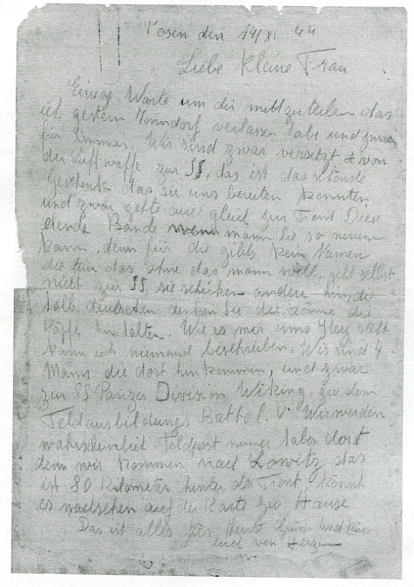 Posen den 14/XI 44
Liebe Kleine Frau
Einige Worte um dir mittzuteilen das
ich gestern verlassen habe und zwar
für immer. Wir sind zwar versetzt von
der Luftwaffe zur SS, das ist das schönste
Geschenk das sie uns bereiten konnten
und zwar gehts auch gleich zur Front Diese
Bande wenn mann Sie so nennen
kann, denn für die gibts kein Namen
die tun das, ohne das mann will, geht selbst
nicht zur SS sie schicken andere hin, die
halb deutschen denken Sie die können die
Köpfe hin halten. Wie es mir ums Herz
kann ich niemand beschreiben. Wir sind 7
Mann die dort hinkommen, und zwar
zur SS Panzer Division Wiking, zu dem
Feldausbildungs Battel. V. Wir werden
wahrscheinlich Feldpost numer haben dort
denn wir kommen nach Lowitz, das
ist 80 Kilometer hinter der Front, könnt
es nachsehen auf der Karte zu Hause
Das ist alles für heute und
euch von Herzen